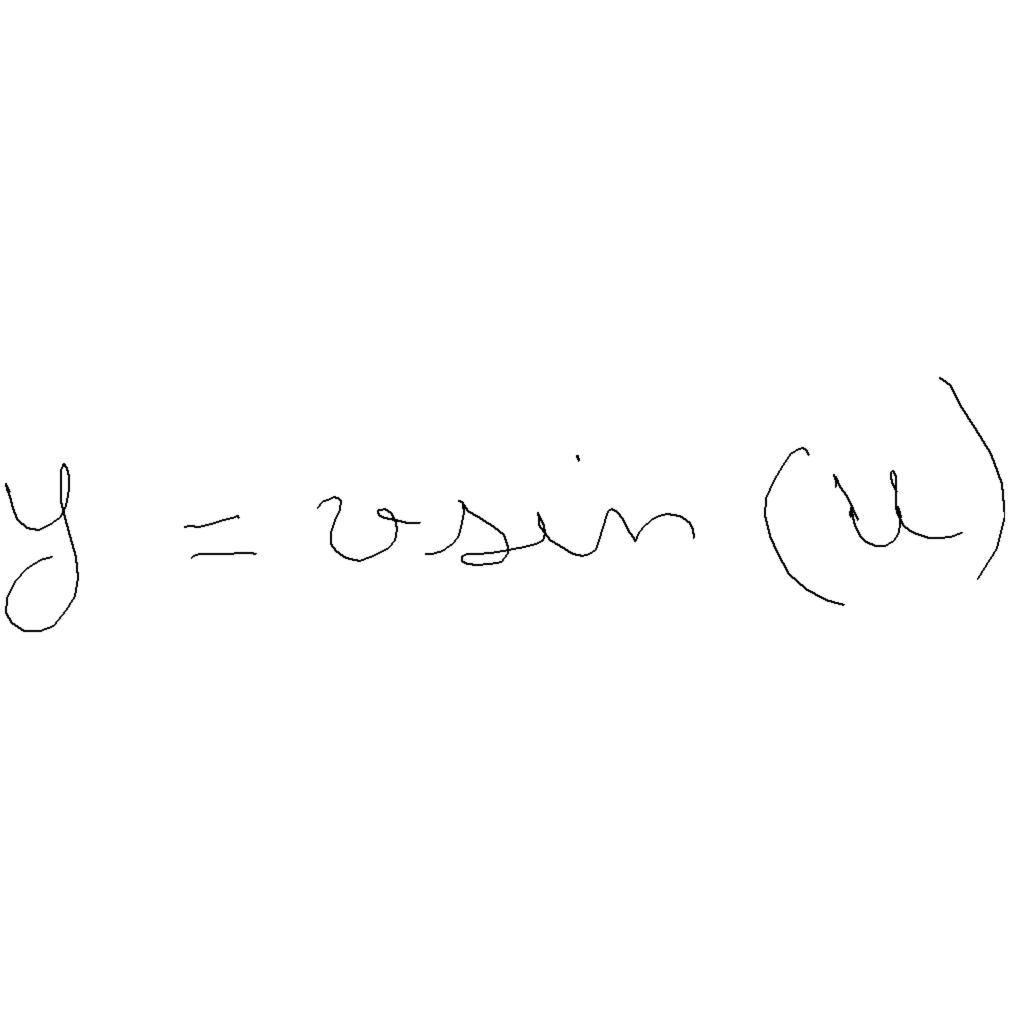 y = v sin (u)